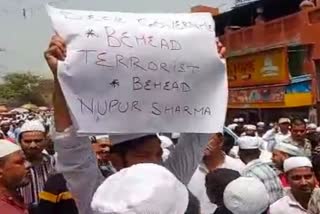 * BEHEAD
TERRORIST
* BEHEAD
NUPUR SHARMA